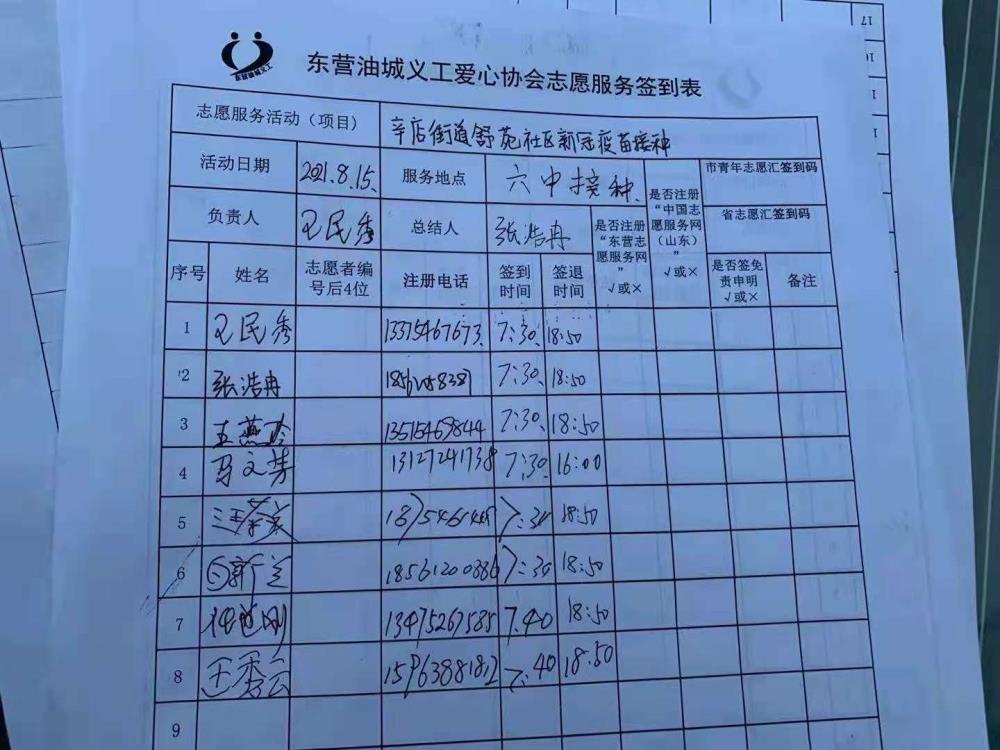 东营油城义工
东营油城义工爱心协会志愿服务签到表
志愿服务活动（项目） 辛店街道舒苑社区新冠疫苗接种
活动日期 2021.8.15. 服务地点 六中接种、 是否注册“中国志愿服务网（山东）” √或× 市青年志愿汇签到码
负责人 王民秀 总结人 张浩冉 是否注册“东营志愿服务网” √或× 省志愿汇签到码
序号 姓名 志愿者编号后4位 注册电话 签到时间 签退时间 是否签免责申明 √或× 备注
1 王民秀 13375467673 7:30 18:50
2 张浩冉 7:30 18:50
3 王燕玲 13515469844 7:30 18:50
4 马文芳 13127241738 7:30 16:00
5 7:30 18:50
6 18561200886 7:30 18:50
7 13475267585 7:40 18:50
8 王秀云 15963881812 7:40 18:50
9
17
16